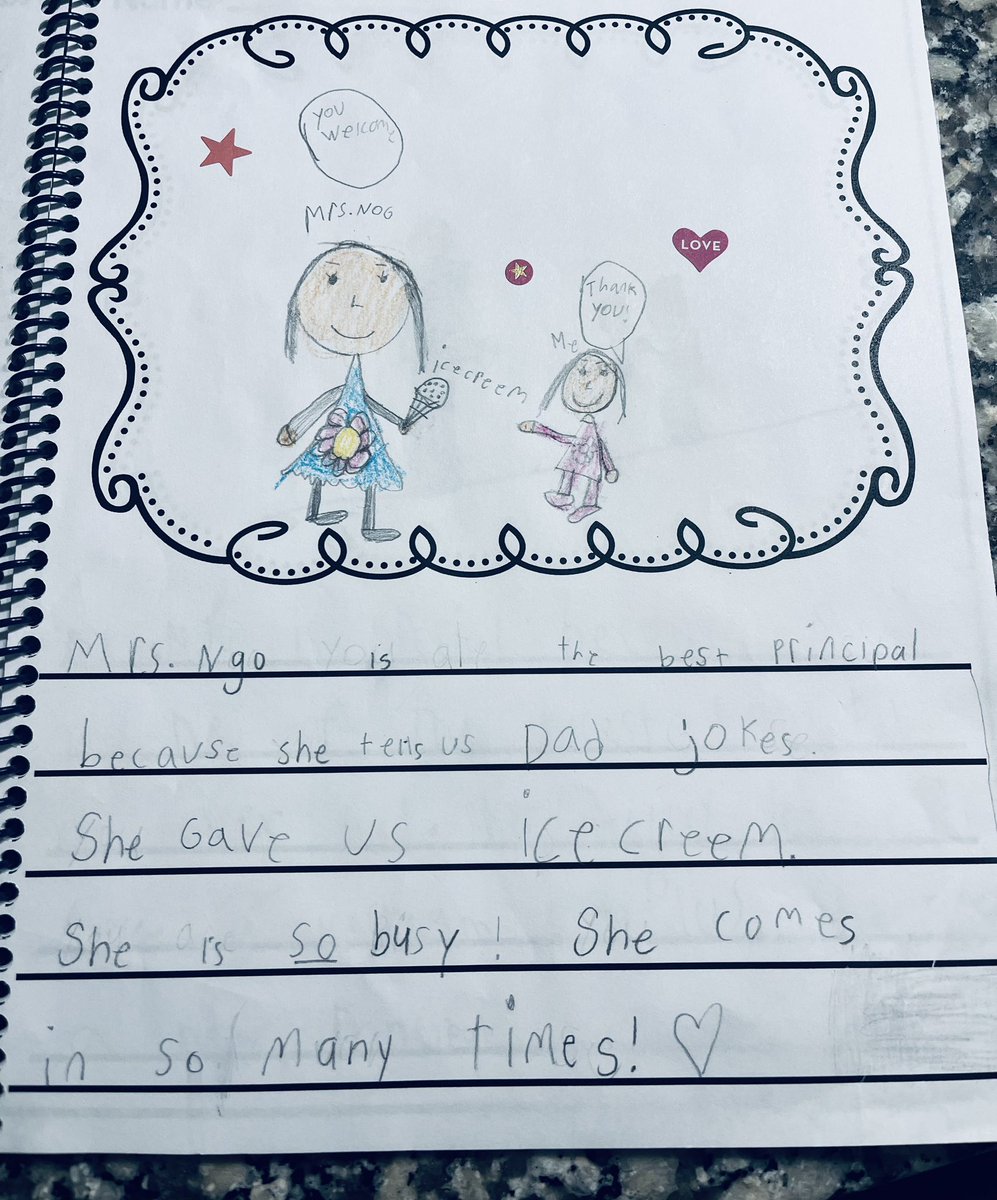 you
welcome
Mrs. NOG
LOVE
Thank
you!
Me
icecreem
Mrs. Ngo is the best principal
because she tells us Dad jokes.
She Gave us icecreem.
She is so busy! She comes
in so many times!